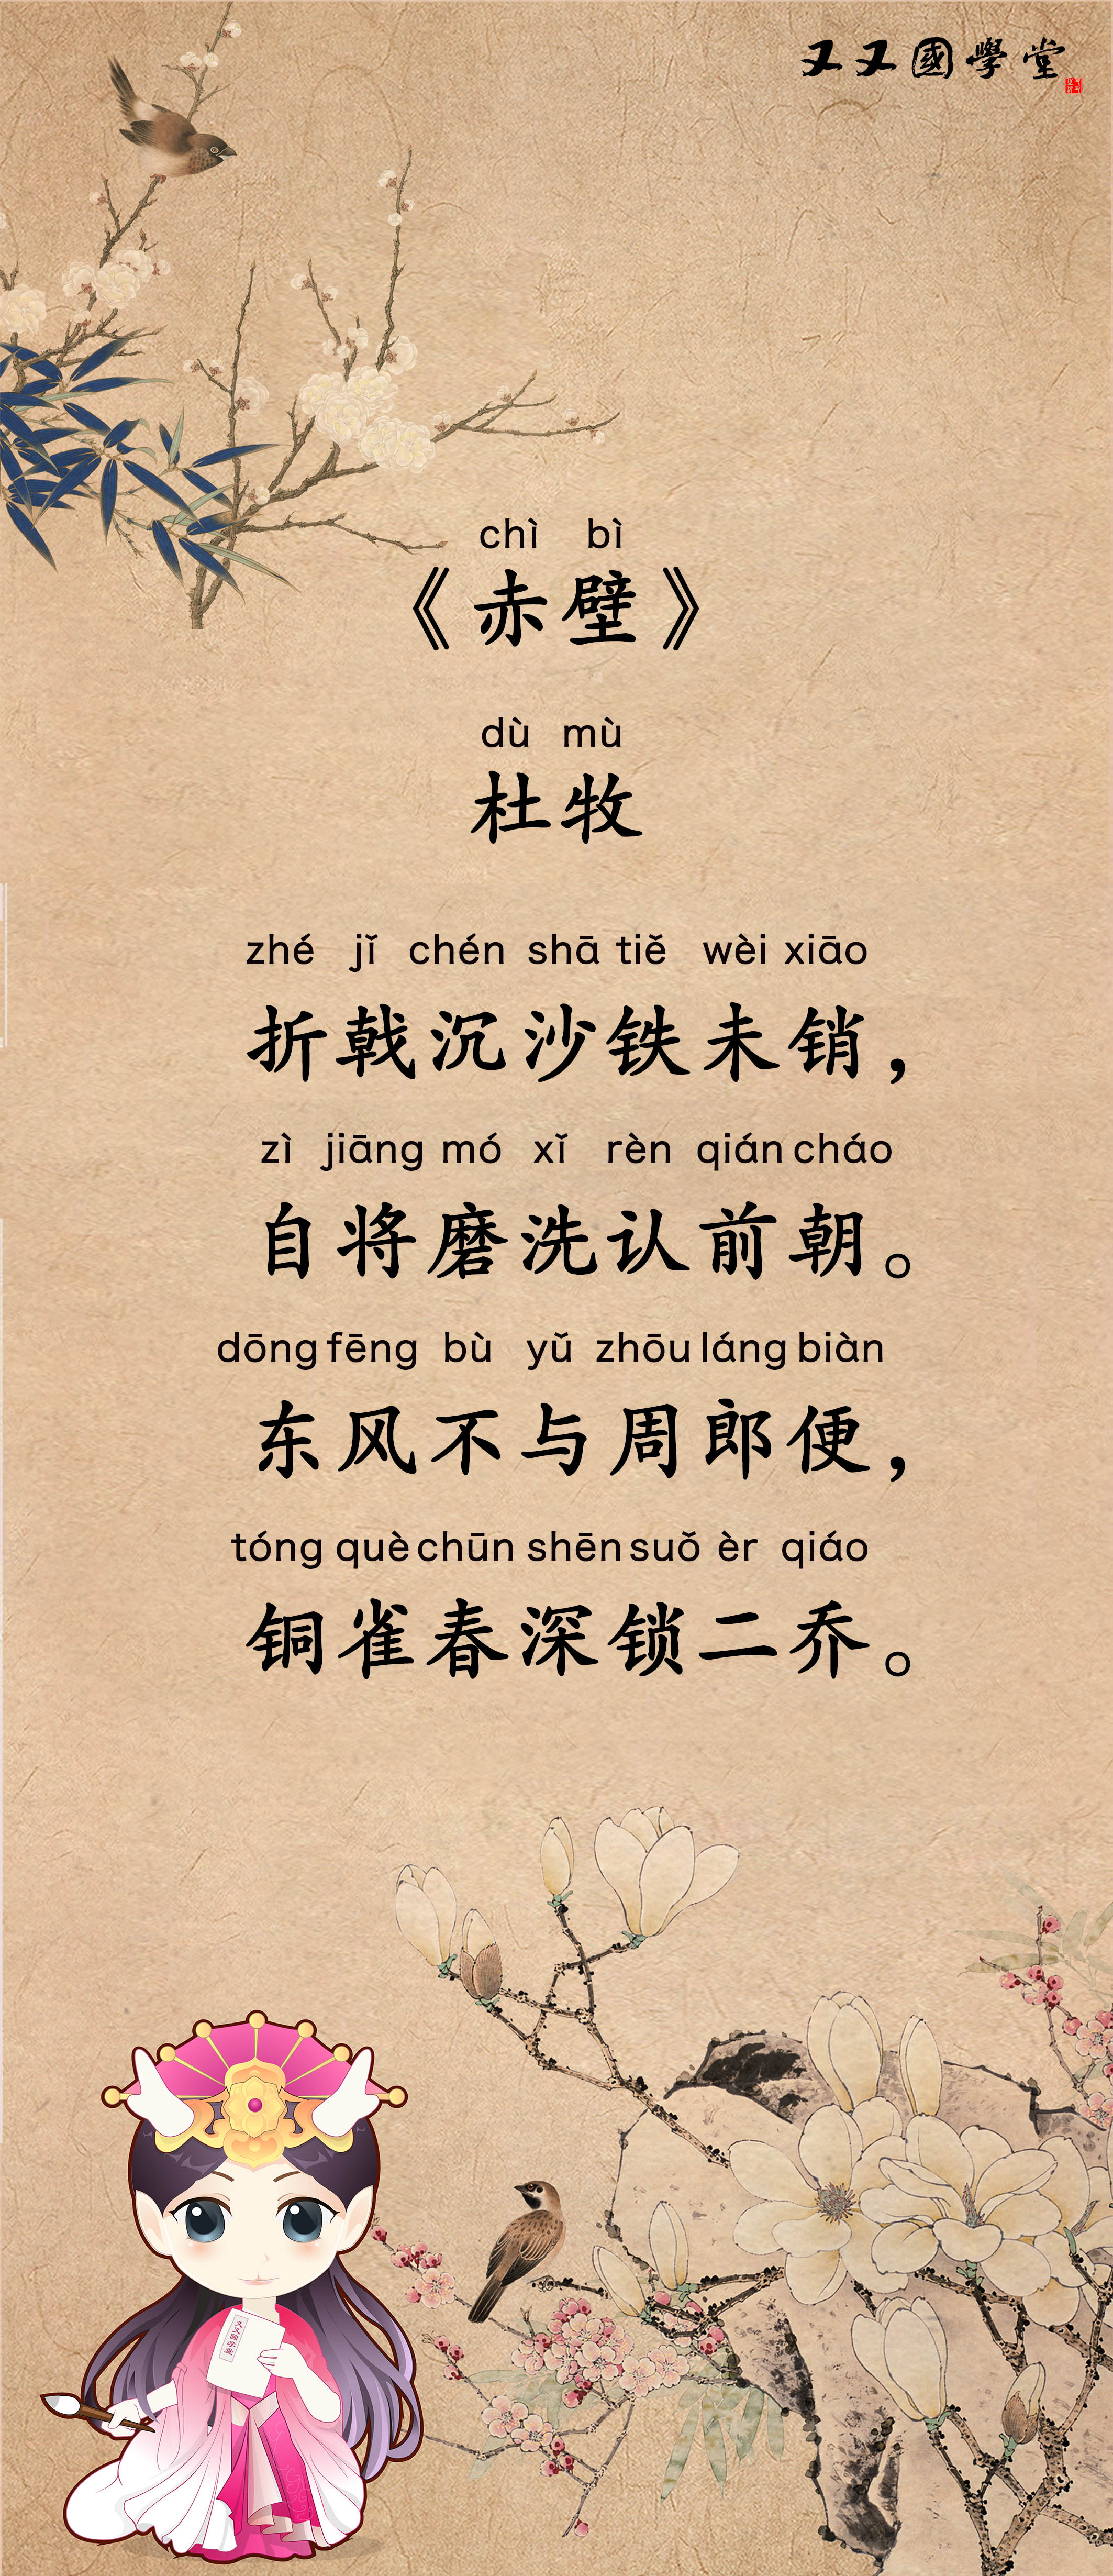 又又國學堂
chì bì
《赤壁》
dù mù
杜牧
zhé jǐ chén shā tiě wèi xiāo
折戟沉沙铁未销，
zì jiāng mó xǐ rèn qián cháo
自将磨洗认前朝。
dōng fēng bù yǔ zhōu láng biàn
东风不与周郎便，
tóng què chūn shēn suǒ èr qiáo
铜雀春深锁二乔。
又又国学堂